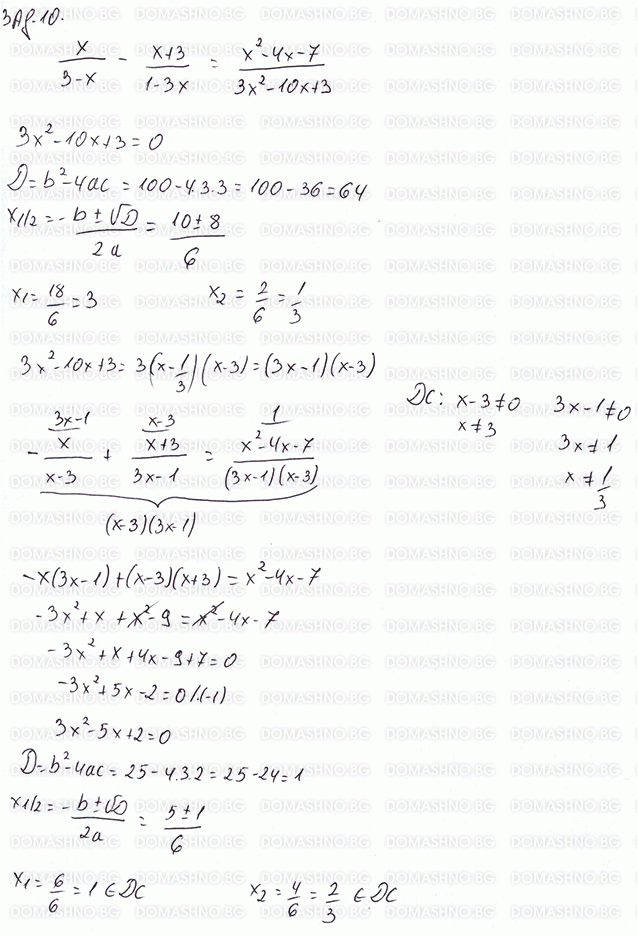 Зад 10.
x/(3-x) - (x+3)/(1-3x) = (x²-4x-7)/(3x²-10x+3)
3x²-10x+3=0
D=b²-4ac = 100-4.3.3 = 100-36=64
x1/2 = (-b±√D)/2a = (10±8)/6
x1= 18/6 = 3 x2 = 2/6 = 1/3
3x²-10x+3= 3(x-1/3)(x-3)=(3x-1)(x-3)
ДС: x-3≠0 3x-1≠0
x≠3 3x≠1
x≠1/3
3x-1 x-3 1
- x/(x-3) + (x+3)/(3x-1) = (x²-4x-7)/((3x-1)(x-3))
(x-3)(3x-1)
-x(3x-1)+(x-3)(x+3)=x²-4x-7
-3x²+x+x²-9=x²-4x-7
-3x²+x+4x-9+7=0
-3x²+5x-2=0/.(-1)
3x²-5x+2=0
D=b²-4ac=25-4.3.2=25-24=1
x1/2=(-b±√D)/2a = (5±1)/6
x1= 6/6 = 1 ∈ ДС x2 = 4/6 = 2/3 ∈ ДС
DOMASHNO.BG